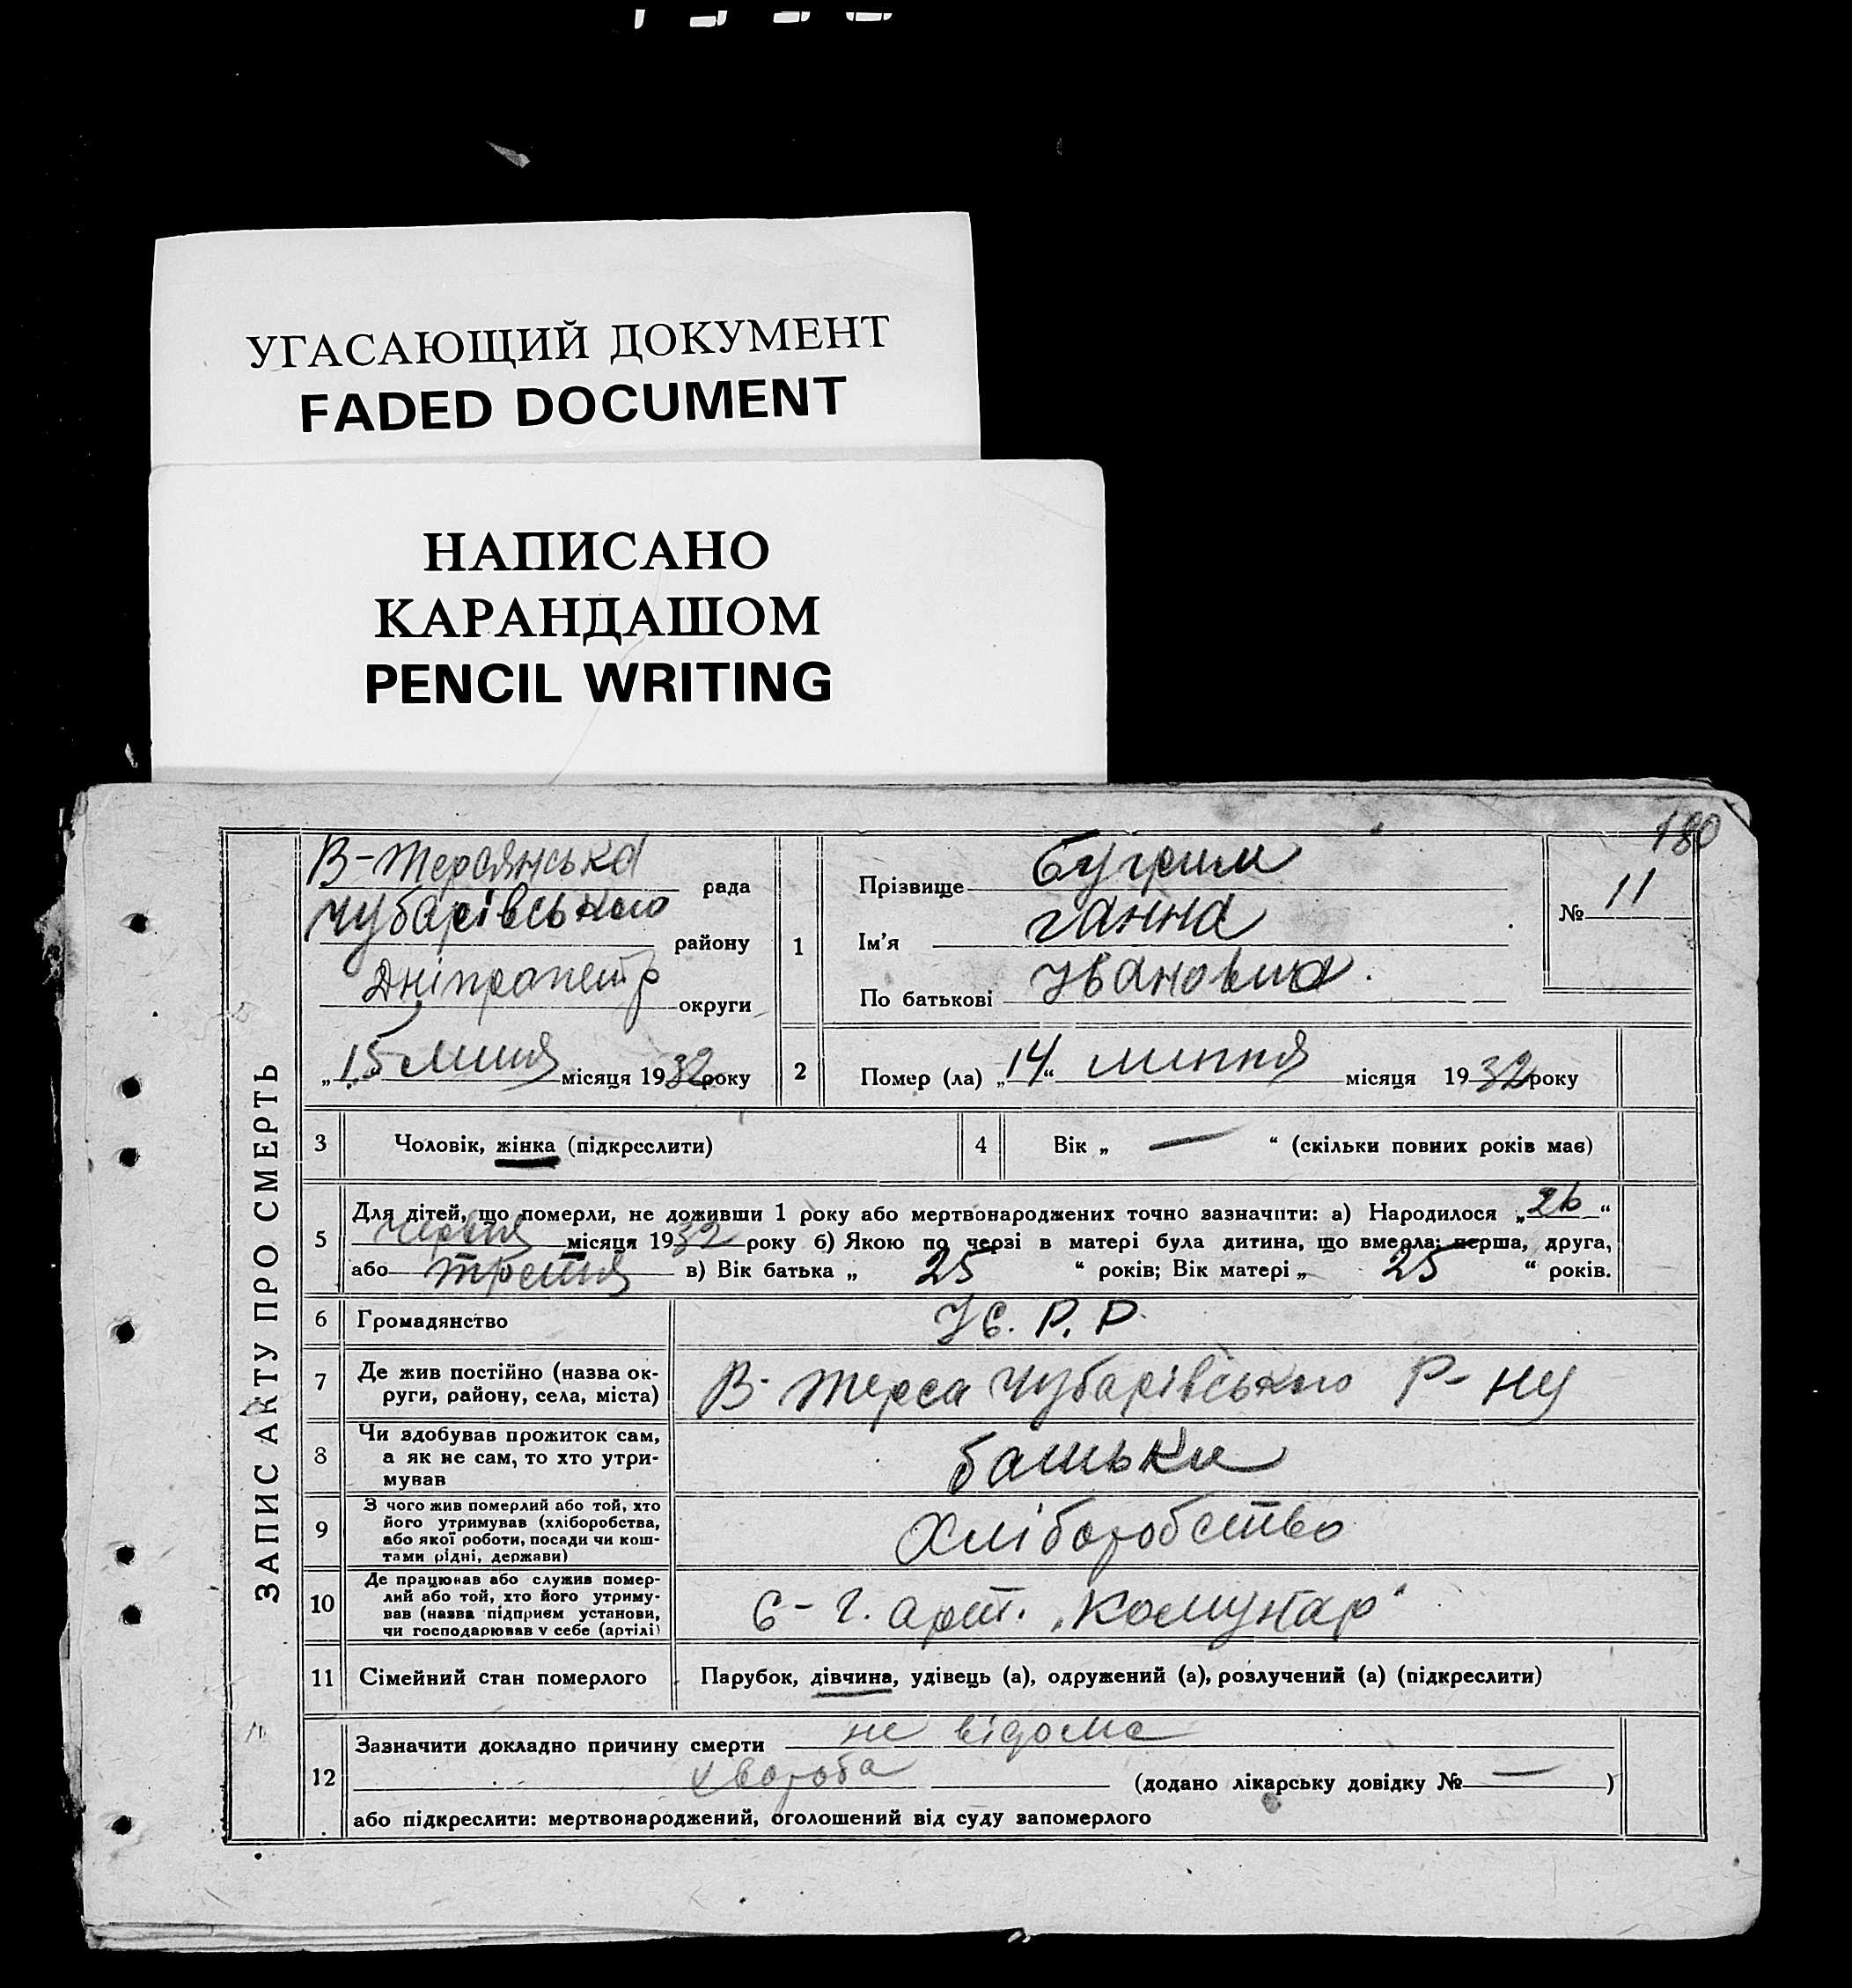 УГАСАЮЩИЙ ДОКУМЕНТ
FADED DOCUMENT
НАПИСАНО
КАРАНДАШОМ
PENCIL WRITING
180
ЗАПИС АКТУ ПРО СМЕРТЬ
В-Терсянська рада
Чубарівського району
Дніпропетр округи
„15 липня місяця 1932 року
1
Прізвище Бугрим
Ім'я Ганна
По батькові Ивановна
№ 11
2 Помер (ла) „14“ липня місяця 1932 року
3 Чоловік, жінка (підкреслити)
4 Вік „ — “ (скільки повних років має)
5 Для дітей, що померли, не доживши 1 року або мертвонароджених точно зазначити: а) Народилося „26“
червня місяця 1932 року б) Якою по черзі в матері була дитина, що вмерла: перша, друга,
або третя в) Вік батька „ 25 “ років; Вік матері „ 25 “ років.
6 Громадянство У.С.Р.Р.
7 Де жив постійно (назва ок-
руги, району, села, міста) В-Терса Чубарівського Р-ну
8 Чи здобував прожиток сам,
а як не сам, то хто утри-
мував батьки
9 З чого жив померлий або той, хто
його утримував (хліборобства,
або якої роботи, посади чи кош-
тами рідні, держави) Хліборобство
10 Де працював або служив помер-
лий або той, хто його утриму-
вав (назва підприєм установи,
чи господарював у себе (артілі) С-г. арт. „Комунар"
11 Сімейний стан померлого Парубок, дівчина, удівець (а), одружений (а), розлучений (а) (підкреслити)
12 Зазначити докладно причину смерти не відома
хвороба (додано лікарську довідку № — )
або підкреслити: мертвонароджений, оголошений від суду запомерлого